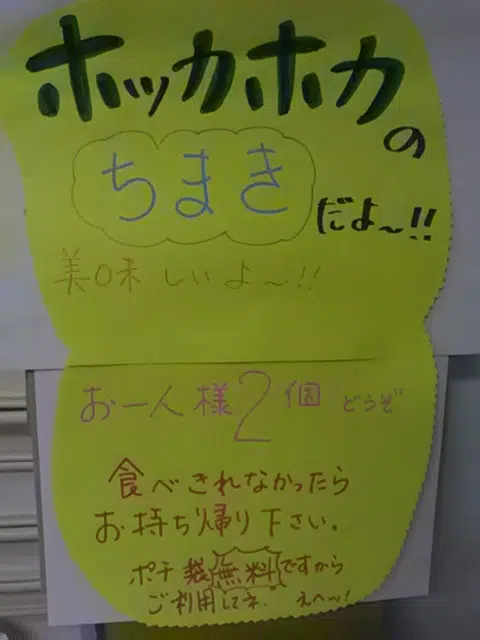 ホッカホカの
ちまき
だよ〜!!
美味しいよ〜!!
お一人様2個 どうぞ
食べきれなかったら
お持ち帰り下さい。
ポチ袋無料ですから
ご利用してネ. えへッ!